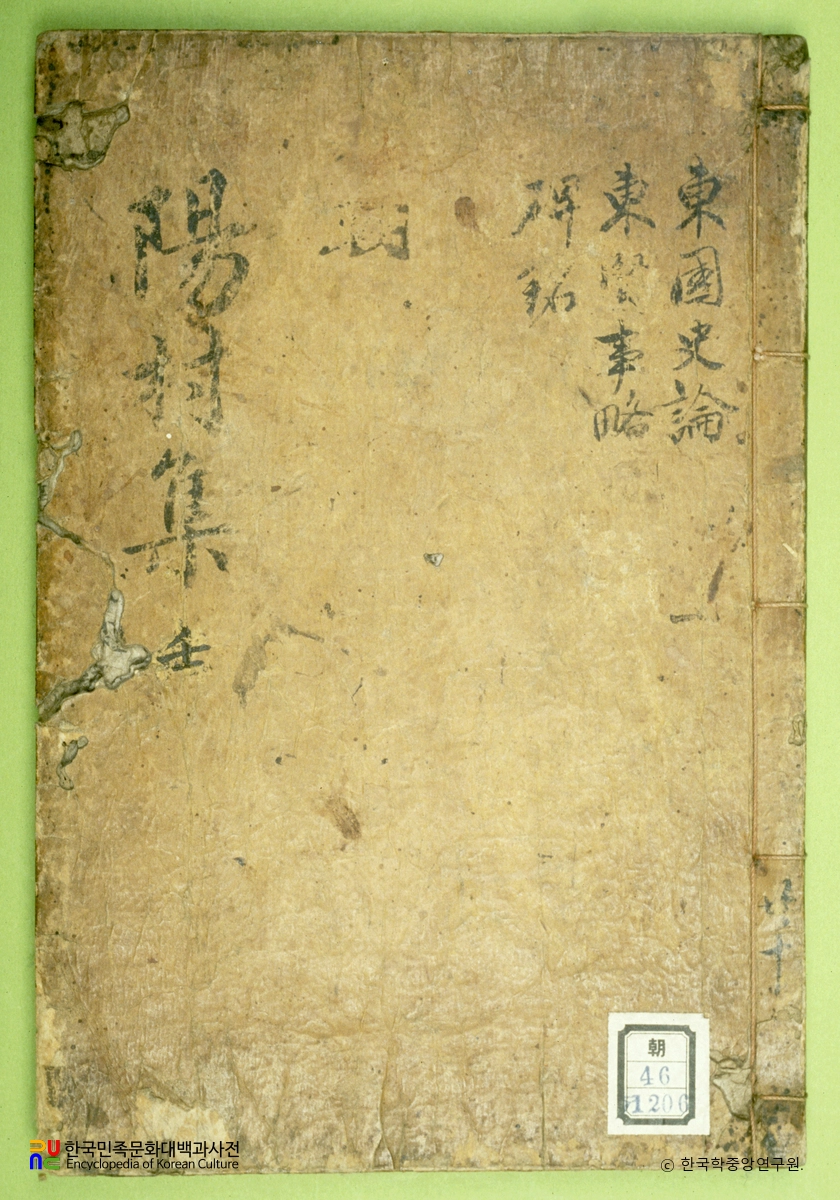 東國史論
東賢事略
碑銘
陽村集 壬
朝
46
1206
한국민족문화대백과사전
Encyclopedia of Korean Culture
© 한국학중앙연구원.